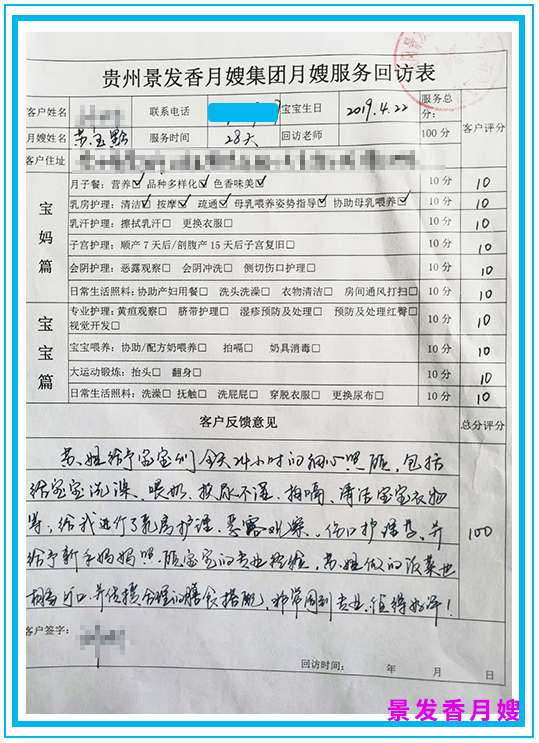 贵州景发香月嫂集团月嫂服务回访表
客户姓名 联系电话 宝宝生日 2019.4.22 服务总分 客户评分
月嫂姓名 苏玉 服务时间 28天 回访老师 100分
客户住址
宝妈篇
月子餐：营养☑ 品种多样化☑ 色香味美☑ 10分 10
乳房护理：清洁☑ 按摩☑ 疏通☑ 母乳喂养姿势指导☑ 协助母乳喂养☑ 10分 10
乳汗护理：擦拭乳汗□ 更换衣服□ 10分 10
子宫护理：顺产7天后/剖腹产15天后子宫复旧□ 10分 10
会阴护理：恶露观察□ 会阴冲洗□ 侧切伤口护理□ 10分 10
日常生活照料：协助产妇用餐□ 洗头洗澡□ 衣物清洁□ 房间通风打扫□ 10分 10
宝宝篇
专业护理：黄疸观察□ 脐带护理□ 湿疹预防及处理□ 预防及处理红臀□
视觉开发□ 10分 10
宝宝喂养：协助/配方奶喂养□ 拍嗝□ 奶具消毒□ 10分 10
大运动锻炼：抬头□ 翻身□ 10分 10
日常生活照料：洗澡□ 抚触□ 洗屁屁□ 穿脱衣服□ 更换尿布□ 10分 10
客户反馈意见 总分评分
苏姐给予宝宝们全天24小时的细心照顾，包括
给宝宝洗澡、喂奶、换尿不湿、拍嗝、清洁宝宝衣物
等，给我进行了乳房护理、恶露观察、伤口护理等，并 100
给予新手妈妈照顾宝宝的专业经验，苏姐做的饭菜也
相当可口，并依据合理的膳食搭配，非常周到专业，值得好评！
客户签字：
回访时间： 年 月 日
景发香月嫂